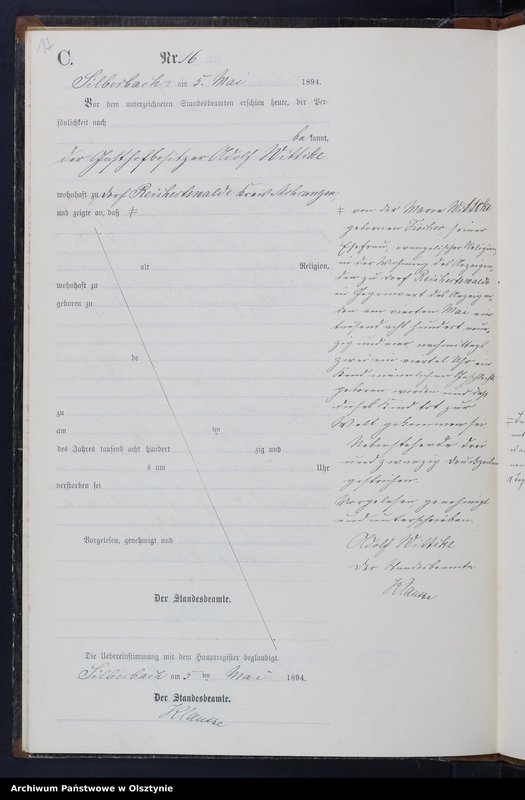 17
C.
Nr. 16
Silberbach am 5. Mai 1894.
Vor dem unterzeichneten Standesbeamten erschien heute, der Per-
sönlichkeit nach
be kannt,
der Gasthofbesitzer Adolf Wittke
wohnhaft zu Dorf Reichertswalde Kreis Mohrungen
und zeigte an, daß ‡
alt Religion,
wohnhaft zu
geboren zu
de
zu
am ten
des Jahres tausend acht hundert zig und
s um Uhr
verstorben sei
Vorgelesen, genehmigt und
Der Standesbeamte.
‡ von der Marie Wittke
geborenen Fischer seiner
Ehefrau, evangelischer Religion,
in der Wohnung des Anzeigen-
den zu Dorf Reichertswalde
in Gegenwart des Anzeigen-
den am vierten Mai ein
tausend acht hundert neun-
zig und vier nachmittags
zwei ein viertel Uhr ein
Kind männlichen Geschlechts
geboren worden und daß
dieses Kind tot zur
Welt gekommen sei
Nebenstehende drei
und zwanzig Druckzeilen
gestrichen.
Vorgelesen genehmigt
und unterschrieben.
Adolf Wittke
Der Standesbeamte
Klautke
Die Uebereinstimmung mit dem Hauptregister beglaubigt.
Silberbach am 5 ten Mai 1894.
Der Standesbeamte.
Archiwum Państwowe w Olsztynie